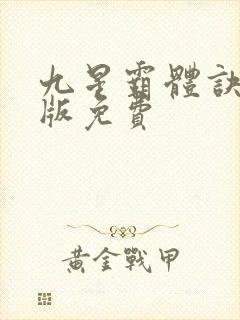 九星霸體訣
版免費
黃金戰甲